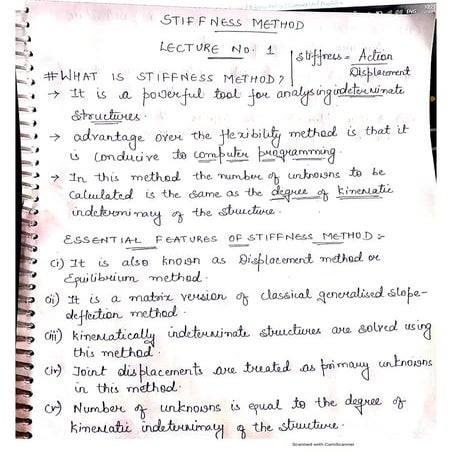 STIFFNESS METHOD
LECTURE NO. 1
Stiffness = Action
Displacement
# WHAT IS STIFFNESS METHOD?
→ It is a powerful tool for analysing indeterminate
structures.
→ advantage over the flexibility method is that it
is conducive to computer programming.
→ In this method the number of unknowns to be
calculated is the same as the degree of kinematic
indeterminacy of the structure.
ESSENTIAL FEATURES OF STIFFNESS METHOD :-
(i) It is also known as Displacement method or
Equilibrium method.
(ii) It is a matrix version of classical generalised slope-
deflection method.
(iii) kinematically indeterminate structures are solved using
this method.
(iv) Joint displacements are treated as primary unknowns
in this method.
(v) Number of unknowns is equal to the degree of
kinematic indeterminacy of the structure.
Scanned with CamScanner